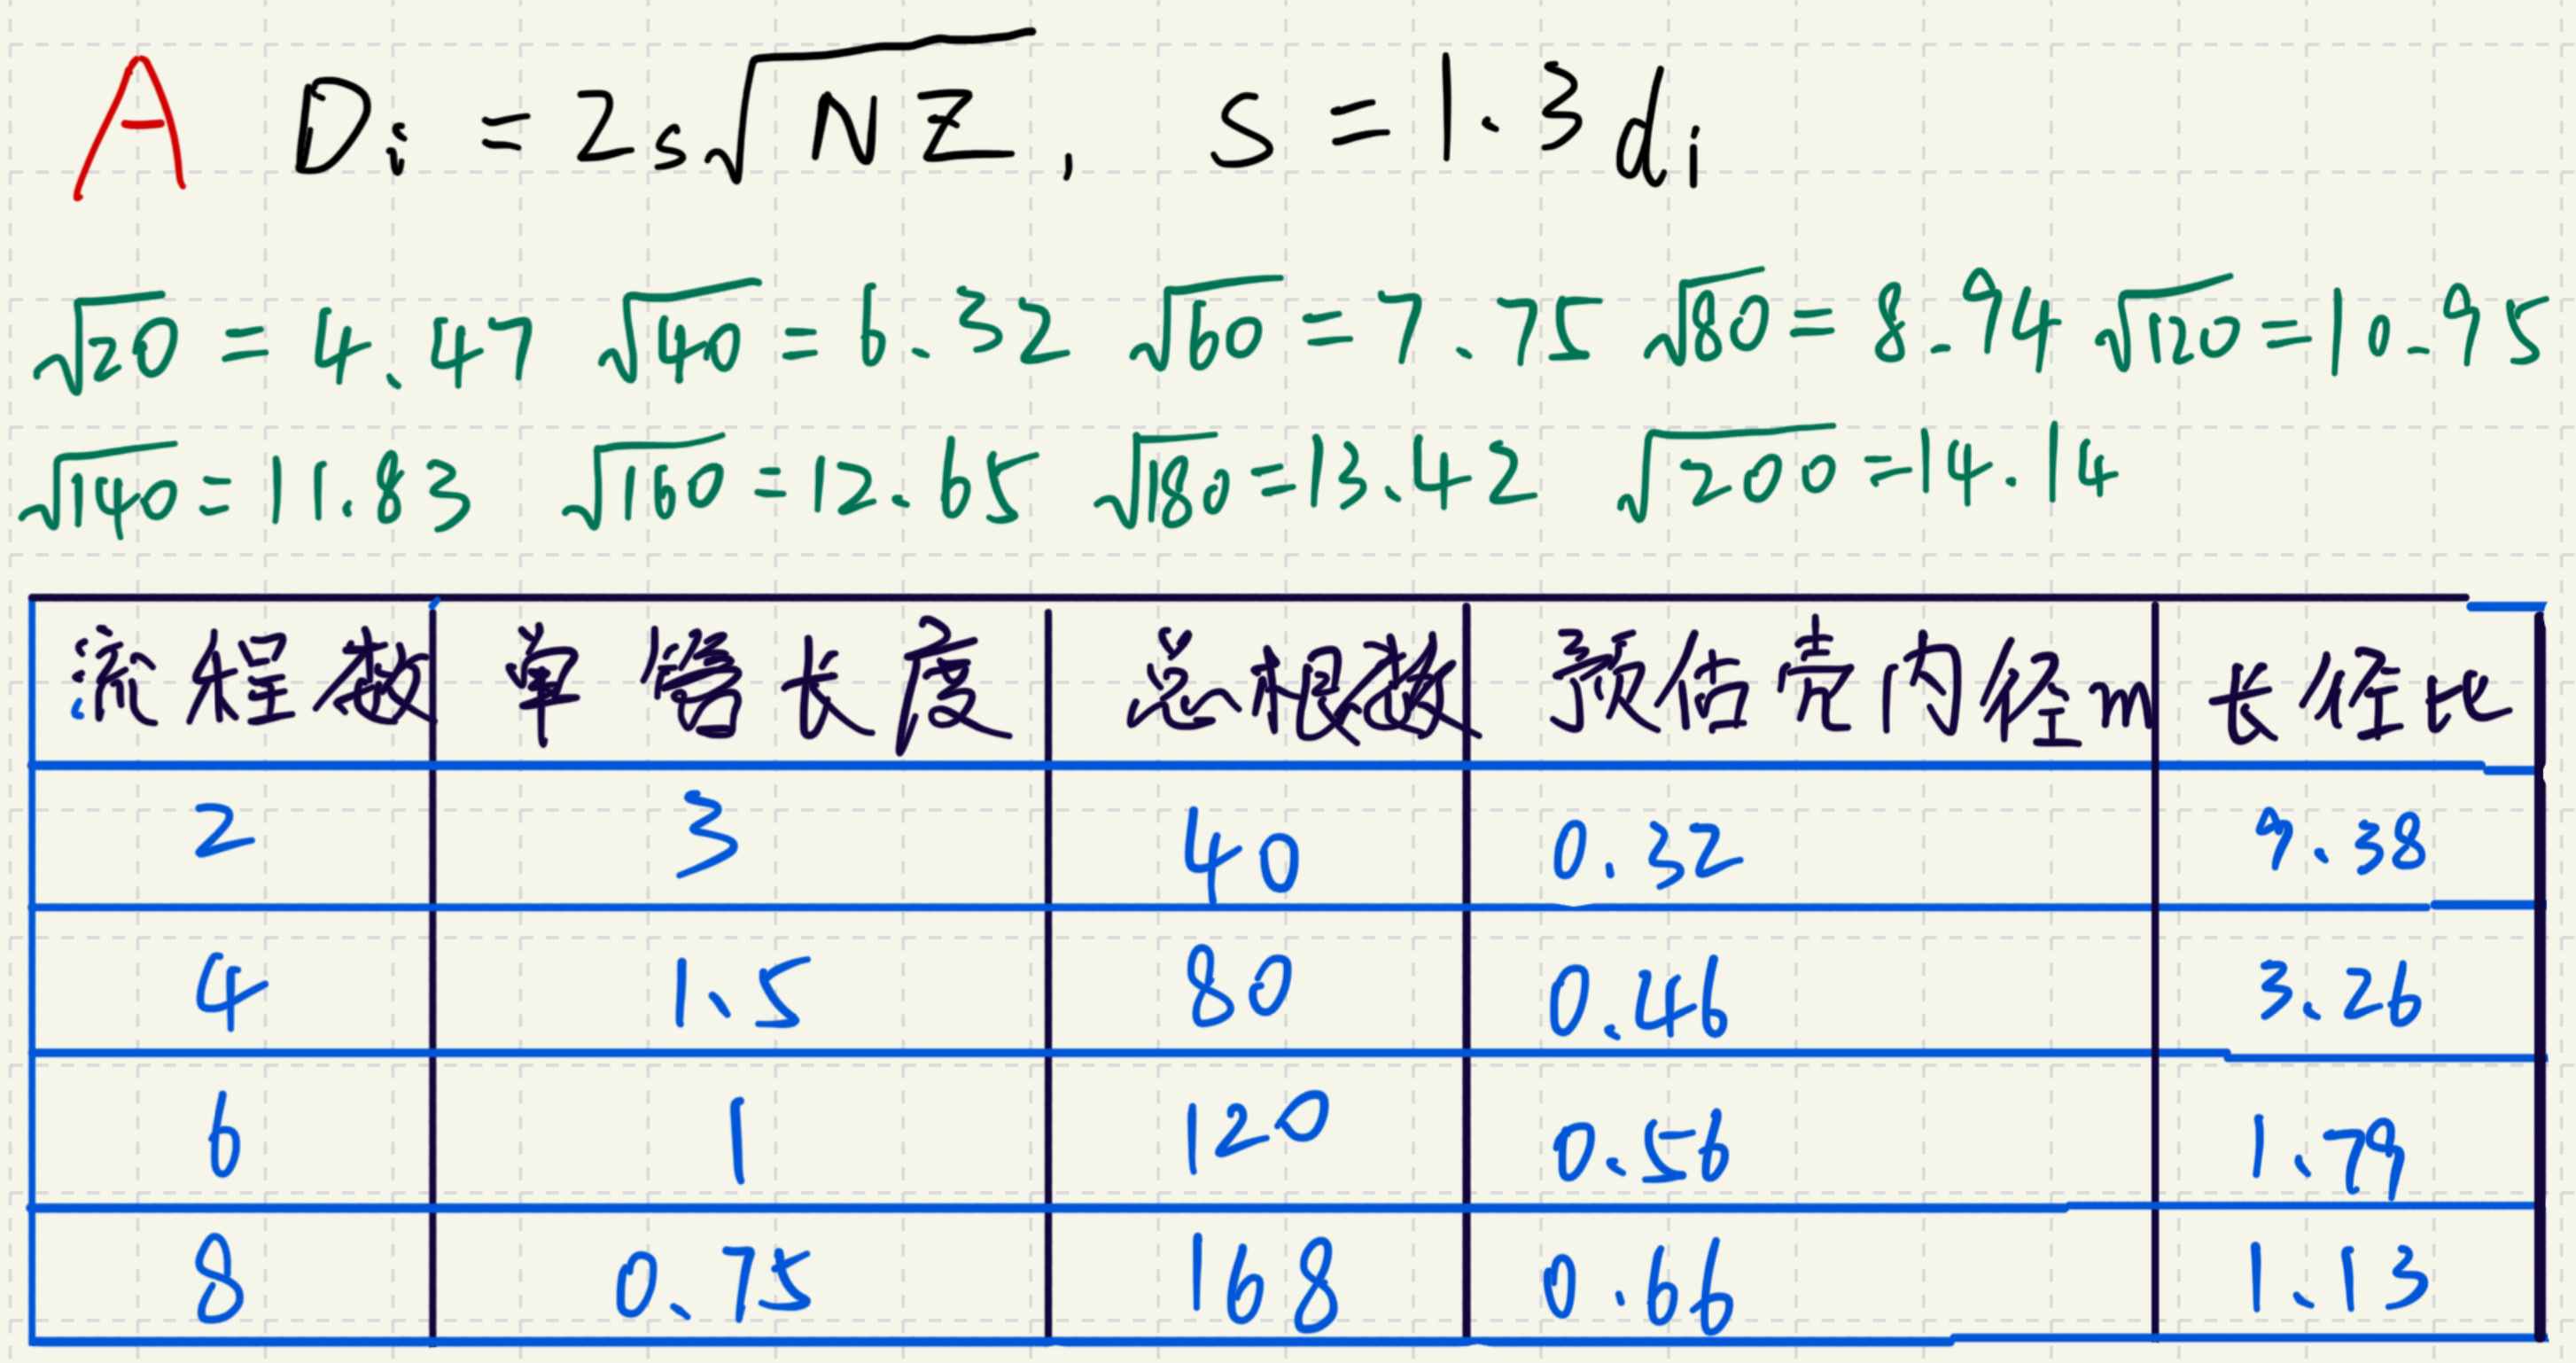 A Di = 2s√NZ, S = 1.3di
√20 = 4.47 √40 = 6.32 √60 = 7.75 √80 = 8.94 √120 = 10.95
√140 = 11.83 √160 = 12.65 √180 = 13.42 √200 = 14.14
流程数 单管长度 总根数 预估壳内径m 长径比
2 3 40 0.32 9.38
4 1.5 80 0.46 3.26
6 1 120 0.56 1.79
8 0.75 168 0.66 1.13